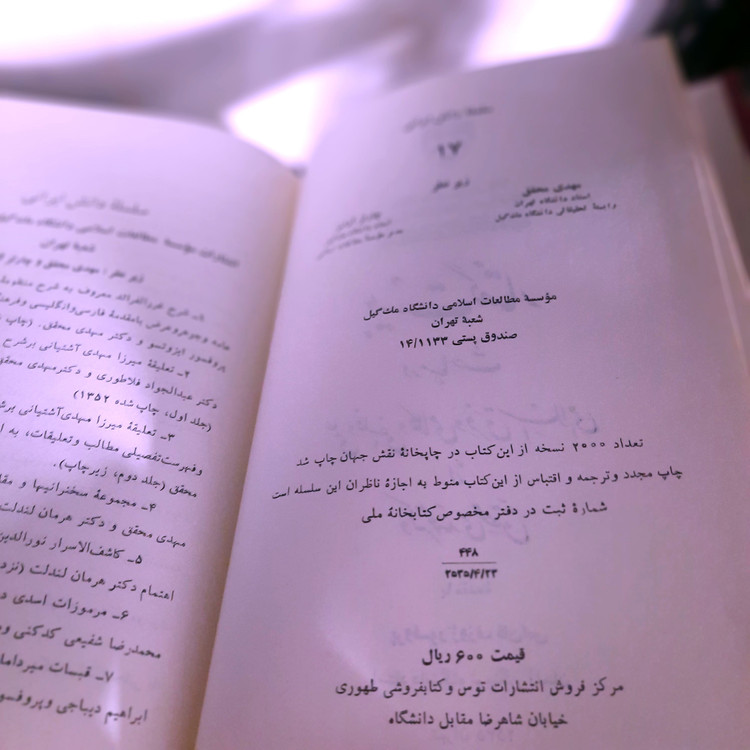 سلسلهٔ دانش ایرانی
۱۷
زیر نظر
مهدی محقق
استاد دانشگاه تهران
وابستهٔ تحقیقاتی دانشگاه مک گیل
مؤسسهٔ مطالعات اسلامی دانشگاه مک گیل
شعبهٔ تهران
صندوق پستی ۱۴/۱۱۳۳
تعداد ۲۰۰۰ نسخه از این کتاب در چاپخانهٔ نقش جهان چاپ شد
چاپ مجدد وترجمه و اقتباس از این کتاب منوط به اجازهٔ ناظران این سلسله است
شمارهٔ ثبت در دفتر مخصوص کتابخانهٔ ملی
۴۴۸
۲۵۳۵/۴/۲۳
قیمت ۶۰۰ ریال
مرکز فروش انتشارات توس وکتابفروشی طهوری
خیابان شاهرضا مقابل دانشگاه
سلسلهٔ دانش ایرانی
انتشارات مؤسسهٔ مطالعات اسلامی دانشگاه مک گیل
شعبهٔ تهران
زیر نظر: مهدی محقق و چارلز
۱ـ شرح غررالفرائد معروف به شرح منظومهٔ
عامه وجوهروعرض بامقدمهٔ فارسی‌وانگلیسی وفرهنگ
پروفسور ایزوتسو و دکتر مهدی محقق. (چاپ
۲ـ تعلیقهٔ میرزا مهدی آشتیانی برشرح
دکتر عبدالجواد فلاطوری و دکترمهدی محقق
(جلد اول، چاپ شده ۱۳۵۲)
۳ـ تعلیقهٔ میرزا مهدی‌آشتیانی
وفهرست‌تفصیلی مطالب وتعلیقات، به
محقق (جلد دوم، زیرچاپ).
۴ـ مجموعهٔ سخنرانیها و
مهدی محقق و دکتر هرمان لندلت
۵ـ کاشف‌الاسرار نورالدین
اهتمام دکتر هرمان لندلت
۶ـ مرموزات اسدی
محمدرضا شفیعی کدکنی
۷ـ قبسات میرداماد
ابراهیم دیباجی وپروفسور